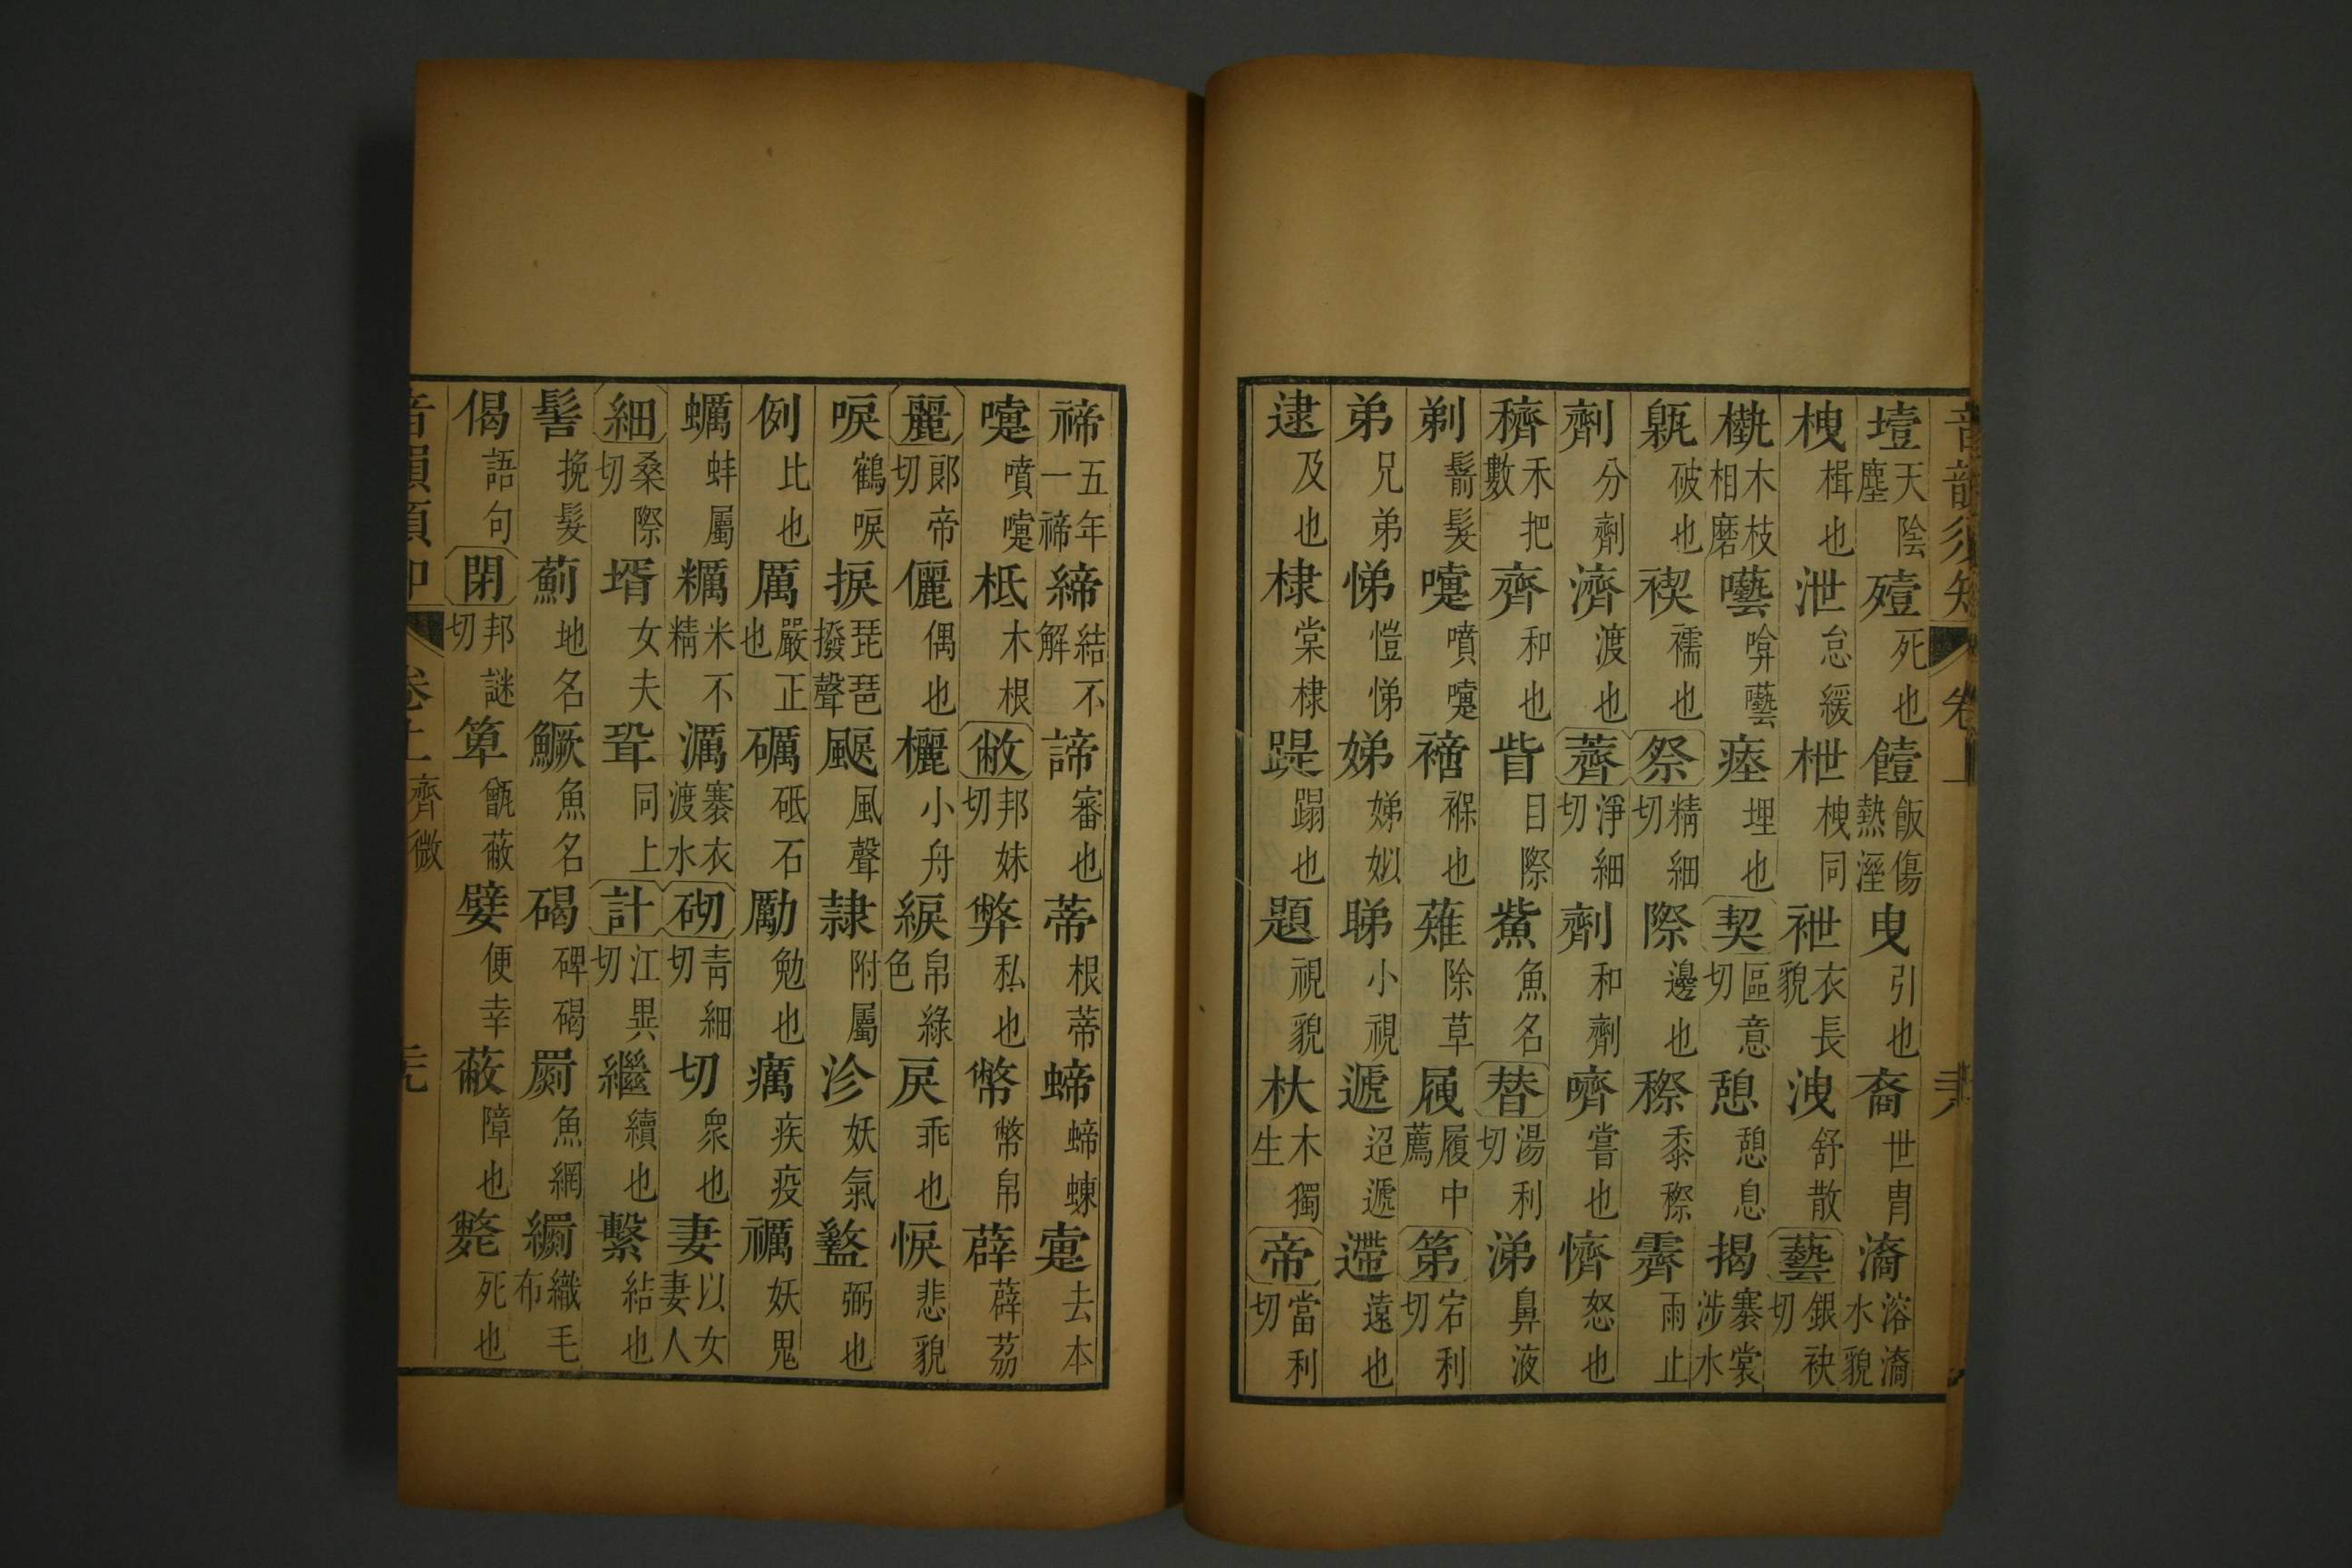 音韻須知 卷上
壒天陰塵 殪死也 饐飯傷熱溼 曳引也 裔世胄 㵝溶㵝水貌
栧楫也 泄怠緩 枻栧同 袣衣長貌 洩舒散 藝銀袂切
槸木枝相磨 囈唅囈 瘞埋也 契區意切 憩憩息 揭褰裳涉水
甈破也 禊襦也 祭精細切 際邊也 穄黍穄 霽雨止
劑分劑 濟渡也 薺淨細切 劑和劑 嚌嘗也 懠怒也
穧禾把數 齊和也 眥目際 鮆魚名 替湯利切 涕鼻液
剃鬀髮 嚏噴嚏 禘褓也 薙除草 屜履中薦 第宕利切
弟兄弟 悌愷悌 娣娣姒 睇小視 遞迢遞 遰遠也
逮及也 棣棠棣 踶蹋也 題視貌 杕木獨生 帝當利切
禘五年一禘 締結不解 諦審也 蒂根蒂 螮螮蝀 疐去本
嚏噴嚏 柢木根 敝邦妹切 弊私也 幣幣帛 薜薜荔
麗郎帝切 儷偶也 欐小舟 綟帛綠色 戾乖也 悷悲貌
唳鶴唳 捩琵琶撥聲 䬆風聲 隷附屬 沴妖氣 盭弼也
例比也 厲嚴正也 礪砥石 勵勉也 癘疾疫 禲妖鬼
蠣蚌屬 糲米不精 濿褰衣渡水 砌青細切 切衆也 妻以女妻人
細桑際切 壻女夫 聓同上 計江異切 繼續也 繫結也
髻挽髮 薊地名 鱖魚名 碣碑碣 罽魚網 繝織毛布
偈語句 閉邦謎切 箄甑蔽 嬖便幸 蔽障也 斃死也
音韻須知 卷上 齊微